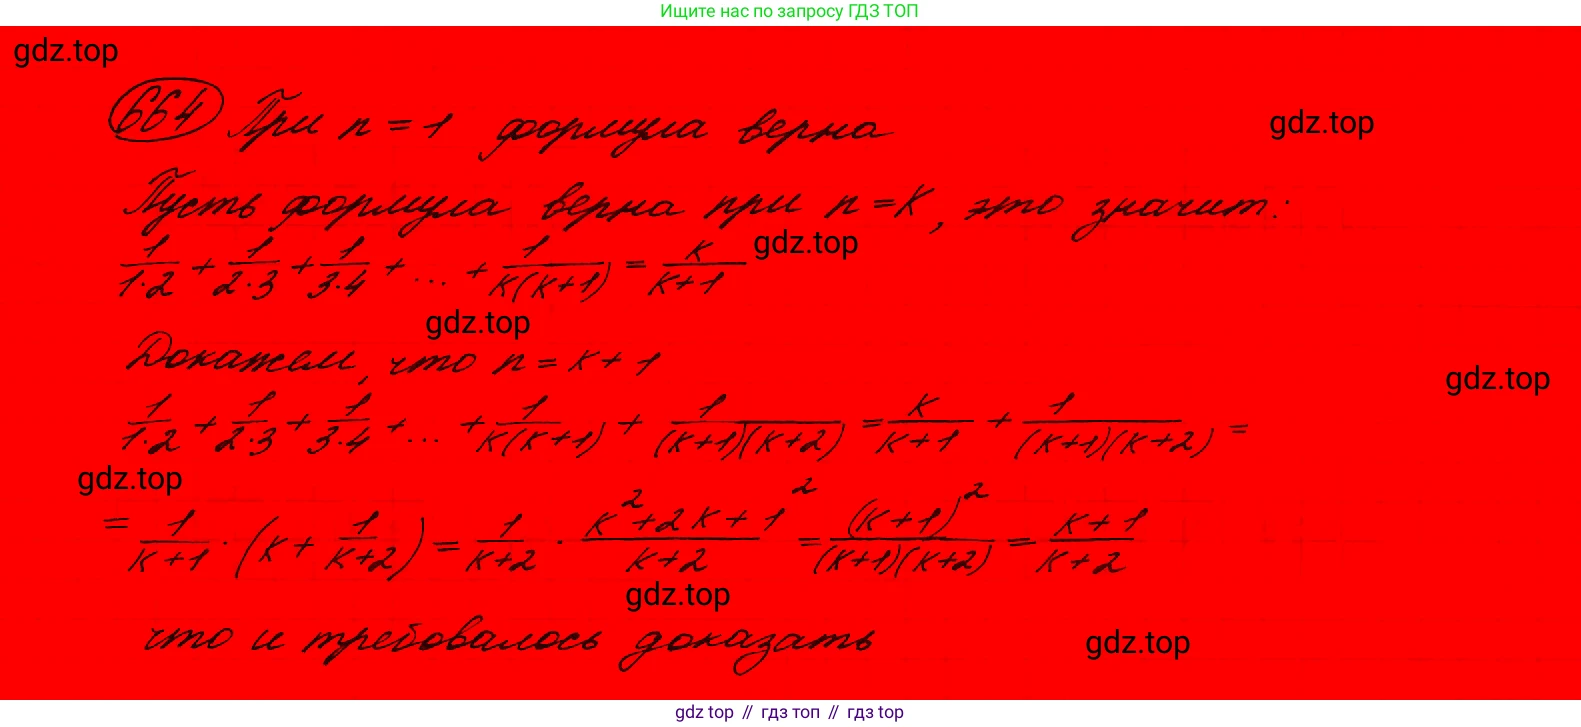 Ищите нас по запросу ГДЗ ТОП
gdz.top
664 При n = 1 формула верна
gdz.top
Пусть формула верна при n = k, это значит:
gdz.top
1/(1·2) + 1/(2·3) + 1/(3·4) + ... + 1/(k(k+1)) = k/(k+1)
gdz.top
Докажем, что n = k + 1
gdz.top
1/(1·2) + 1/(2·3) + 1/(3·4) + ... + 1/(k(k+1)) + 1/((k+1)(k+2)) = k/(k+1) + 1/((k+1)(k+2)) =
gdz.top
= 1/(k+1) · (k + 1/(k+2)) = 1/(k+2) · (k²+2k+1²)/(k+2) = (k+1)²/((k+1)(k+2)) = (k+1)/(k+2)
gdz.top
что и требовалось доказать
gdz.top
gdz top // гдз топ // гдз top